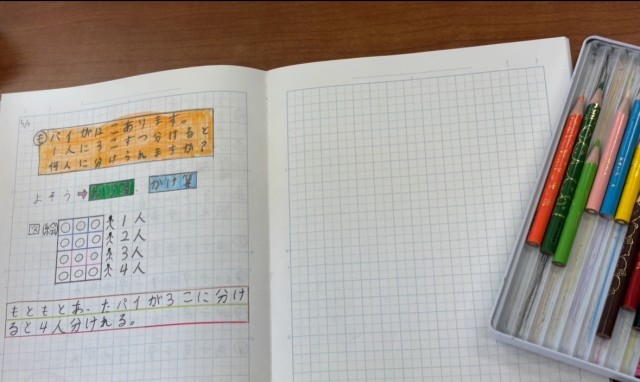 も パイが12こあります。
1人に3こずつ分けると
何人に分けられますか?
よそう→ かけ算
図(絵) 1人
2人
3人
4人
もともとあったパイが3こに分け
ると4人分けれる。